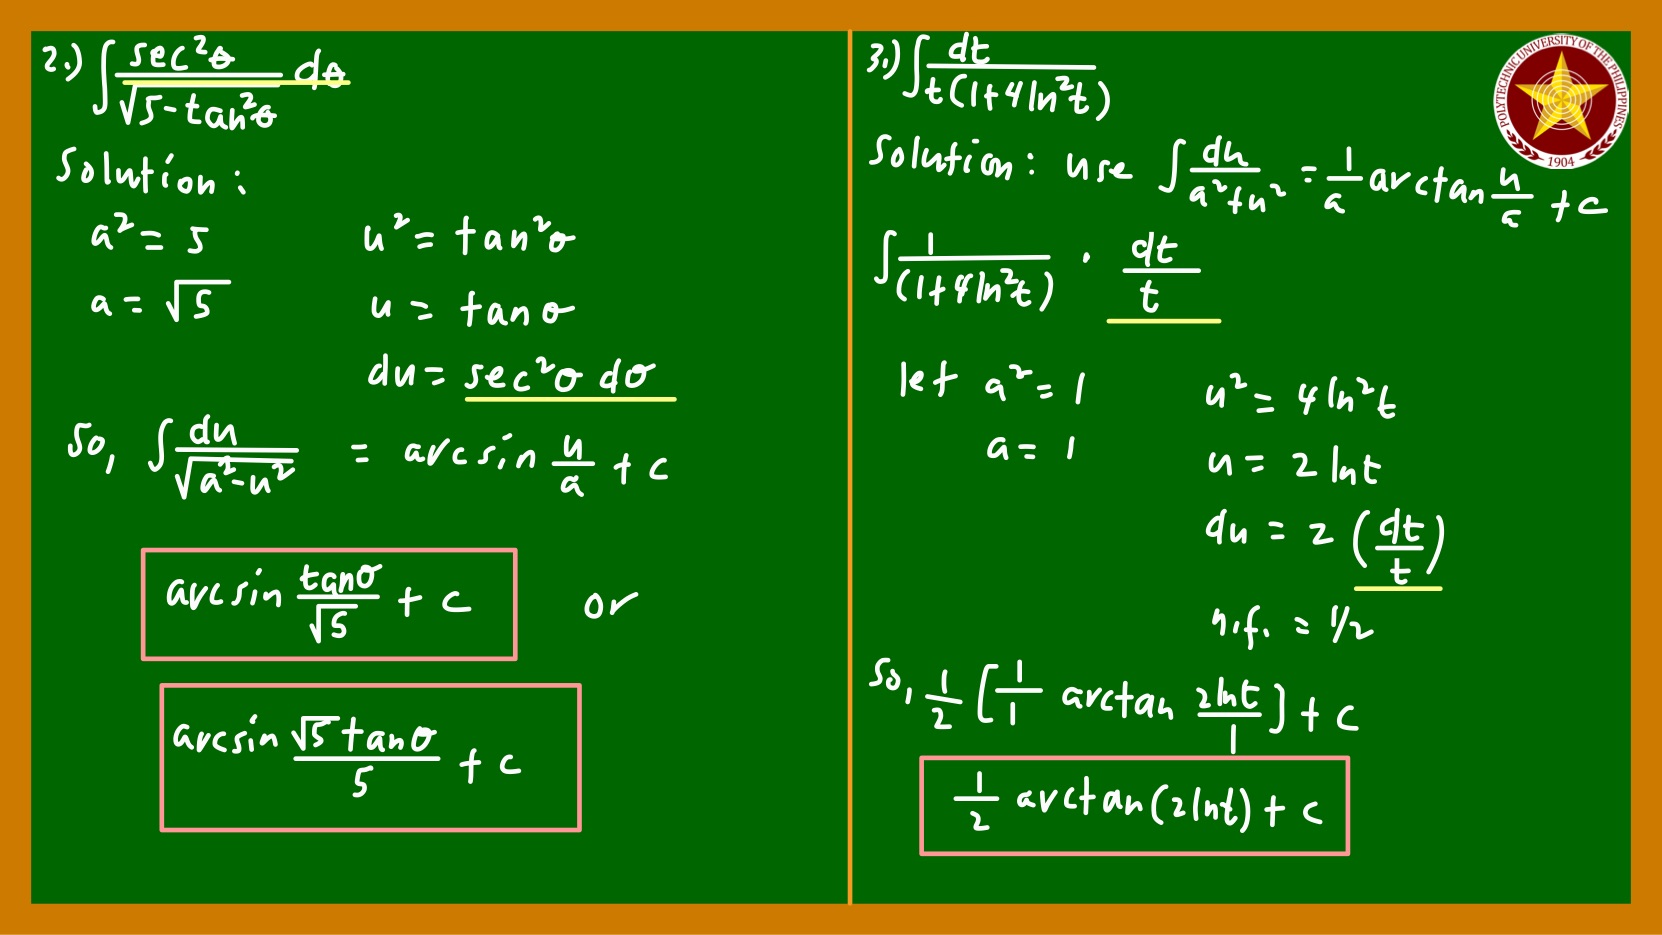 2.) ∫ sec²θ / √(5-tan²θ) dθ
Solution:
a² = 5    u² = tan²θ
a = √5    u = tanθ
du = sec²θ dθ
So, ∫ du / √(a²-u²) = arcsin u/a + c
arcsin tanθ/√5 + c    or
arcsin √5 tanθ / 5 + c
3.) ∫ dt / t(1+4ln²t)
POLYTECHNIC UNIVERSITY OF THE PHILIPPINES
1904
Solution: use ∫ du / a²+u² = 1/a arctan u/a + c
∫ 1/(1+4ln²t) · dt/t
let a² = 1    u² = 4ln²t
a = 1    u = 2lnt
du = 2 (dt/t)
n.f. = 1/2
So, 1/2 [1/1 arctan 2lnt/1] + c
1/2 arctan(2lnt) + c